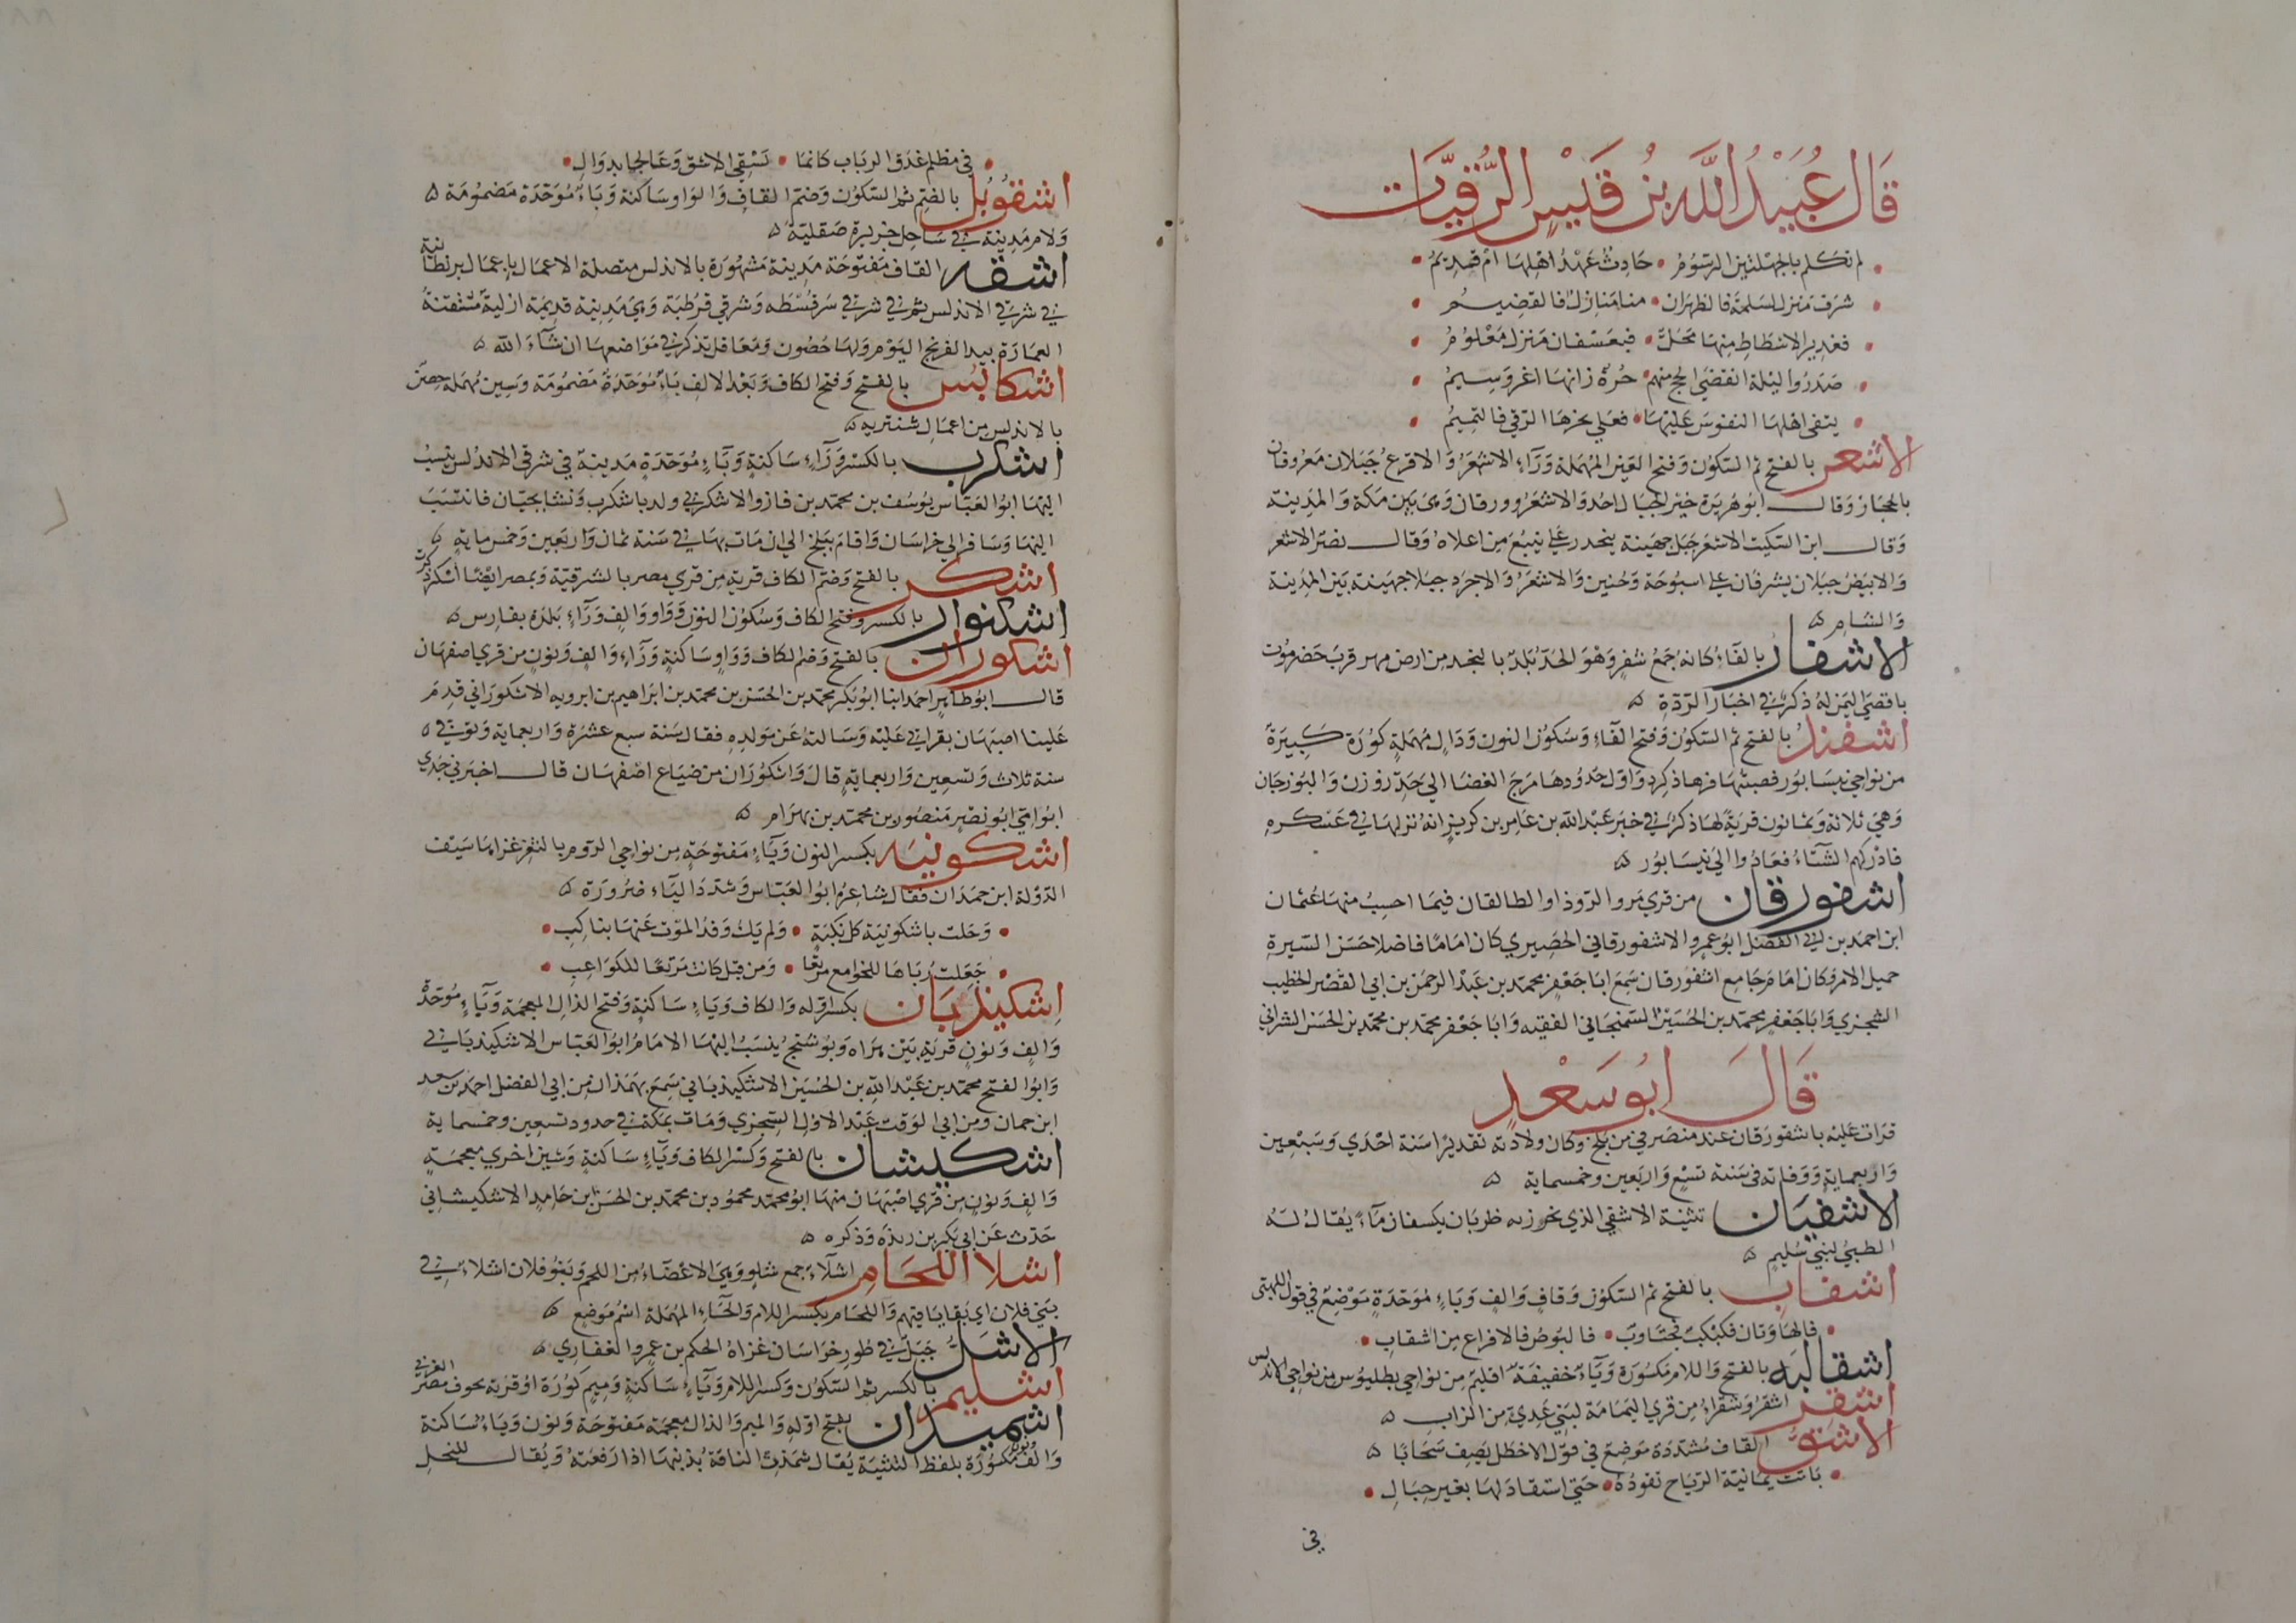 قَال عُبَيْدُ اللَّه بنُ قَيْسٍ الرُّقيَّات
لم تكلم بالجهلتين الرسوم • حادث عهد اهلها ام قديم
شرف منزل لسلمة فالظهران • منا منازل فالقضيم
فغدير الاشطاط منها محل • فبعسفان منزل معلوم
صدروا ليلة انقضى الحج منهم • حرة زانها اغر وسيم
يتقى اهلها النفوس عليها • فعلى نحرها الرقي والتميم
الاشعر بالفتح ثم السكون وفتح العين المهملة وراء الاشعر والاقرع جبلان معروفان
بالحجاز وقال ابو هريرة خير الجبال احد والاشعر وورقان وهي بين مكة والمدينة
وقال ابن السكيت الاشعر جبل جهينة ينحدر على ينبع من اعلاه وقال نصر الاشعر
والابيض جبلان يشرفان على اسبوحة وحنين والاشعر والاجرد جبلا جهينة بين المدينة
والشام
الاشفار بالفاء كانه جمع شفر وهو الحد بلد بالنجد من ارض مهر قرب حضرموت
باقصى اليمن له ذكر في اخبار الردة
اشفند بالفتح ثم السكون وفتح الفاء وسكون النون ودال مهملة كورة كبيرة
من نواحي نيسابور قصبتها فرهاذكرد واول حدودها مرج الفضا الى حد زوزن والبوزجان
وهي ثلاثة وثمانون قرية لها ذكر في خبر عبد الله بن عامر بن كريز انه نزلها في عسكره
فادركهم الشتاء فعادوا الى نيسابور
اشفورقان من قرى مرو الروذ او الطالقان فيما احسب منها عثمان
ابن احمد بن ابي الفضل ابو عمرو الاشفورقاني الحصيري كان اماما فاضلا حسن السيرة
جميل الامر وكان امام جامع اشفورقان سمع ابا جعفر محمد بن عبد الرحمن بن ابي القصر الخطيب
الشجزي وابا جعفر محمد بن الحسين السمنجاني الفقيه وابا جعفر محمد بن محمد بن الحسن الشرابي
قَالَ ابُو سَعْدٍ
قرات عليه باشفورقان عند منصرفي من بلخ وكان ولادته تقديرا سنة احدى وسبعين
واربعماية ووفاته في سنة تسع واربعين وخمسماية
الاشفيان تثنية الاشفى الذي يخرز به ظربان يكسفان ماء يقال له
الظبي لبني سليم
اشقاب بالفتح ثم السكون وقاف والف وباء موحدة موضع في قول اللهبي
فالهاوتان فكبكب فجتاوب • فالبوص فالافراع من اشقاب
اشقالية بالفتح واللام مكسورة وياء خفيفة اقليم من نواحي بطليوس من نواحي الاندلس
اشقر اشقر وشقراء من قرى اليمامة لبني عدي من الراب
الاشق القاف مشددة موضع في قول الاخطل يصف سحابا
باتت يمانية الرياح تقوده • حتى استقاد لها بغير حبال
في
في مظلم غدق الرباب كانما • تسقي الاشق وعالجا بدوال
اشقوبل بالضم ثم السكون وضم القاف والواو ساكنة وباء موحدة مضمومة
ولام مدينة في ساحل جزيرة صقلية
اشقه القاف مفتوحة مدينة مشهورة بالاندلس متصلة الاعمال باعمال برنطانية
في شرقي الاندلس ثم في شرقي سرقسطه وشرقي قرطبة وهي مدينة قديمة ازلية متقنة
العمارة بيد الفرنج اليوم ولها حصون ومعاقل تذكر في مواضعها ان شاء الله
اشكابس بالفتح وفتح الكاف وبعد الالف باء موحدة مضمومة وسين مهملة حصن
بالاندلس من اعمال شنتريه
اشكرب بالكسر وراء ساكنة وباء موحدة مدينة في شرقي الاندلس ينسب
اليها ابو العباس يوسف بن محمد بن فازو الاشكربي ولد باشكرب ونشا بجيان فانتسب
اليها وسافر الى خراسان واقام ببلخ الى ان مات بها في سنة ثمان واربعين وخمسماية
اشكر بالفتح وضم الكاف قرية من قرى مصر بالشرقية وبمصر ايضا اسكر ذكرت
اشكنوار بالكسر وفتح الكاف وسكون النون وواو والف وراء بلدة بفارس
اشكوران بالفتح وضم الكاف وواو ساكنة وراء والف ونون من قرى اصفهان
قال ابو طاهر احمد انبا ابو بكر محمد بن الحسن بن محمد بن ابراهيم بن ابرويه الاشكوراني قدم
علينا اصبهان بقراني عليه وسالته عن مولده فقال سنة سبع عشرة واربعماية وتوفي
سنة ثلاث وتسعين واربعماية قال واشكوران من ضياع اصفهان قال اخبرني جدي
ابو امي ابو نصر منصور بن محمد بن بهرام
اشكونيه بكسر النون وياء مفتوحة من نواحي الروم بالثغر غزاها سيف
الدولة ابن حمدان فقال شاعره ابو العباس وشدد الياء ضرورة
• وحلت باشكونية كل نكبة • ولم يك وفد الموت عنها بناكب •
• جعلت رباها للخوامع مرتعا • ومن قبل كانت مرتعا للكواعب •
اشكيذبان بكسر اوله والكاف وياء ساكنة وفتح الذال المعجمة وباء موحدة
والف ونون قرية بين هراه وبوشنج ينسب اليها الامام ابو العباس الاشكيذباني
وابو الفتح محمد بن عبد الله بن الحسين الاشكيذباني سمع بهمذان من ابي الفضل احمد بن سعد
ابن حمان ومن ابي الوقت عبد الاول السجزي ومات بمكة في حدود تسعين وخمسماية
اشكيشان بالفتح وكسر الكاف وياء ساكنة وشين اخرى معجمة
والف ونون من قرى اصبهان منها ابو محمد محمود بن محمد بن الحسن بن حامد الاشكيشاني
حدث عن ابي بكر بن ريذة وذكره
اشلا اللحام اشلاء جمع شلو وهي الاعضاء من اللحم وبنو فلان اشلاء في
بني فلان اي بقايا فيهم واللحام بكسر اللام والحاء المهملة اسم موضع
الاشل جبل في طور خراسان غزاه الحكم بن عمرو الغفاري
اشليم بالكسر ثم السكون وكسر اللام وياء ساكنة وميم كورة او قرية بحوف مصر الغربي
اشميذان بفتح اوله والميم والذال معجمة مفتوحة ونون وياء ساكنة
والف ونون مكسورة بلفظ التثنية يقال شمذت الناقة بذنبها اذا رفعته ويقال للنحل